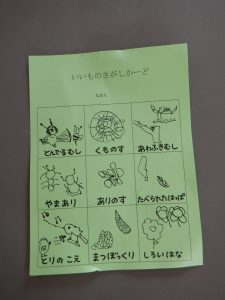 いいものさがしかーど
なまえ
とんでるむし くものす あわふきむし
やまあり ありのす たべられたはっぱ
とりのこえ まつぼっくり しろいはな